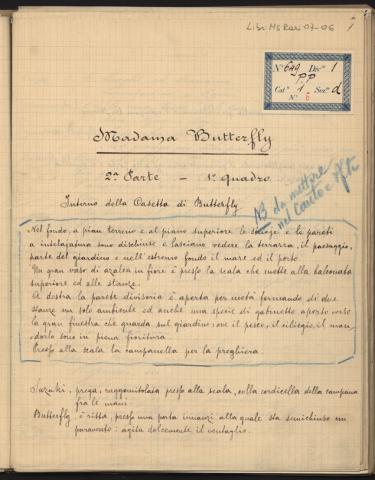 Libr MS Rari 07-06
1
N° 649 Div.e 1
PP
Cat.a 1 Sez.e d
N° 6
Madama Butterfly
2ª Parte – 1° Quadro
Interno della Casetta di Butterfly
NB da mettere
nel Canto e Pfte
Nel fondo, a pian terreno e al piano superiore le stuoje e le pareti
a intelajatura sono dischiuse e lasciano vedere la terrazza, il paesaggio,
parte del giardino e nell'estremo fondo il mare ed il porto.
Un gran vaso di azalea in fiore è presso la scala che mette alla balconata
superiore ed alle stanze.
A destra la parete divisoria è aperta per metà formando di due
stanze un solo ambiente ed anche una specie di gabinetto aperto verso
la gran finestra che guarda sul giardino: ove il pesco, il ciliegio, il man-
dorlo sono in piena fioritura.
Presso alla scala la campanella per la preghiera.
Suzuki, prega, raggomitolata presso alla scala, colla cordicella della campana
fra le mani.
Butterfly, è ritta, presso una porta innanzi alla quale sta semichiuso un
paravento: agita dolcemente il ventaglio.